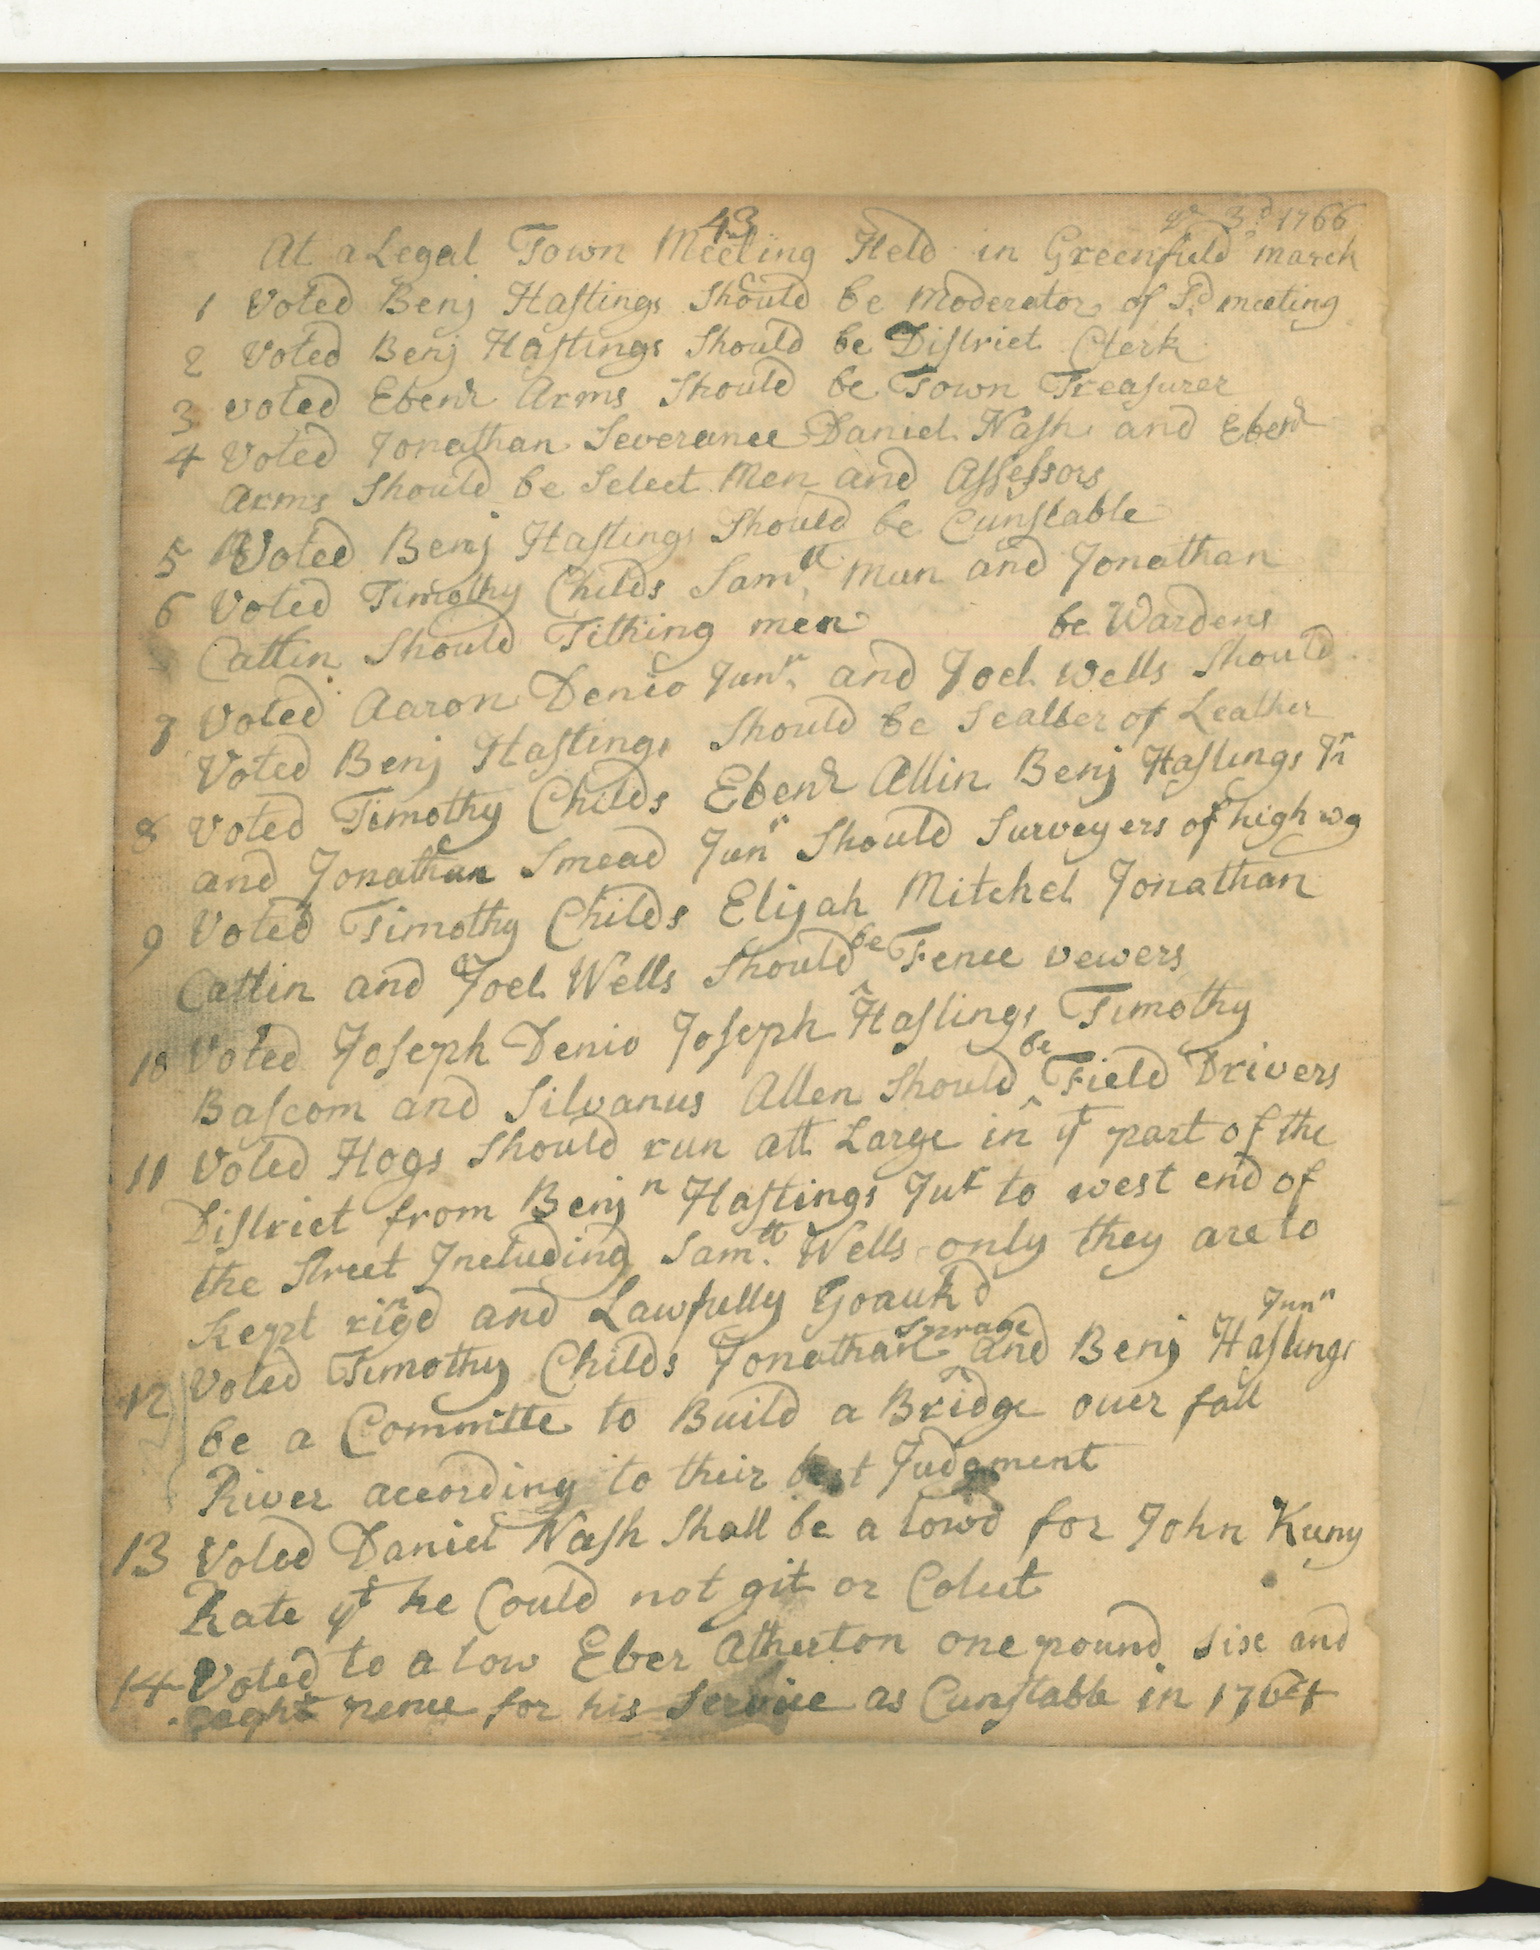 43
ye 3d 1766
At a Legal Town Meeting Held in Greenfield march
1 Voted Benj Hastings Should be Moderator of Sd meeting
2 Voted Benj Hastings Should be District Clerk
3 voted Ebenr Arms Should be Town Treasurer
4 Voted Jonathan Severance Daniel Nash and Ebenr
Arms Should be Select Men and Assessors
5 Voted Benj Hastings Should be Cunstable
6 Voted Timothy Childs Samll Mun and Jonathan
Catlin Should Tithing men
be Wardens
7 Voted Aaron Denio Junr and Joel Wells Should
Voted Benj Hastings Should be Sealler of Leather
8 Voted Timothy Childs Ebenr Allin Benj Hastings Jr
and Jonathan Smead Junr Should Surveyers of high wy
9 Voted Timothy Childs Elijah Mitchel Jonathan
Catlin and Joel Wells Should be Fence vewers
10 Voted Joseph Denio Joseph Hastings Timothy
Bascom and Silvanus Allen Should be Field Drivers
11 Voted Hogs Should run att Large in yt part of the
District from Benjn Hastings Jur to west end of
the Street Including Samll Wells only they are to
Kept ringd and Lawfully Yoauk d
12 Voted Timothy Childs Jonathan Sprage and Benj Hastings Junr
be a Committe to Build a Bridge over fall
River according to their best Judgment
13 Voted Daniel Nash Shall be a lowd for John Kuny
Rate yt he Could not git or Colect
14 Voted to a low Eber Atherton one pound Six and
eaght pence for his Service as Cunstable in 1764